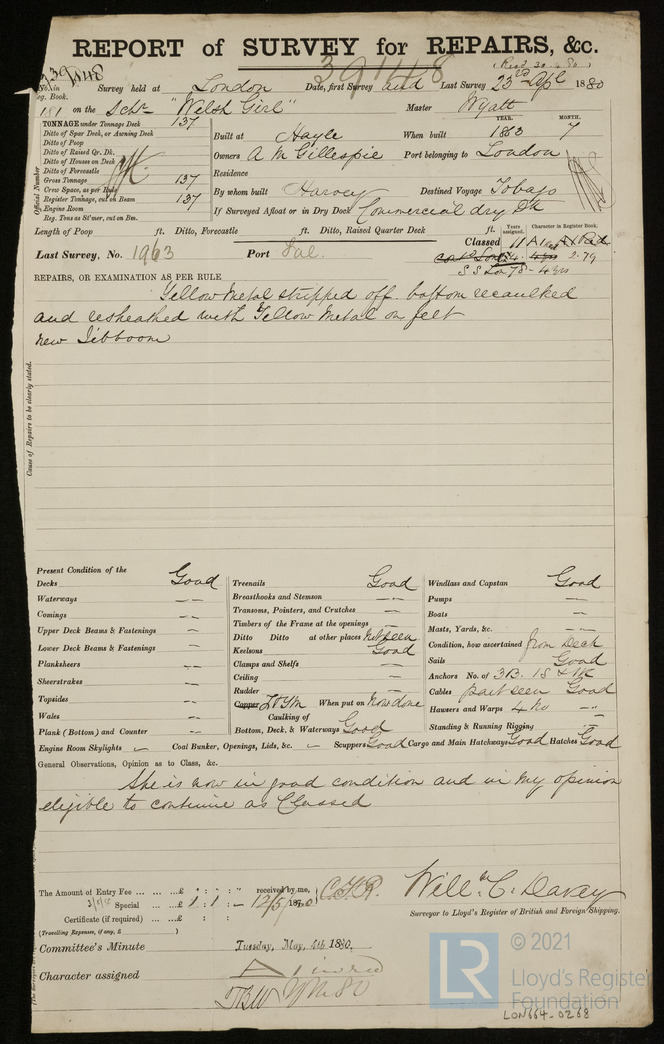 REPORT of SURVEY for REPAIRS, &c.
39148
39148
(Recd 30.4.80)
No. in Reg. Book. Survey held at London Date, first Survey and Last Survey 23rd Apl 1880
181 on the Schr "Welsh Girl" Master Wyatt
TONNAGE under Tonnage Deck 137
Ditto of Spar Deck, or Awning Deck
Ditto of Poop
Ditto of Raised Qr. Dk.
Ditto of House on Deck
Ditto of Forecastle
Gross Tonnage 137
Crew Space, as per Rule
Register Tonnage, cut on Beam 137
Engine Room
Reg. Tons as St'mer, cut on Bm.
Official Number
Built at Hayle When built YEAR. 1863 MONTH. 7
Owners A M Gillespie Port belonging to London
Residence
By whom built Harvey Destined Voyage Tobago
If Surveyed Afloat or in Dry Dock Commercial dry Dk
Length of Poop ft. Ditto, Forecastle ft. Ditto, Raised Quarter Deck ft.
Years assigned. Character in Register Book.
Classed 11 A1
2.79
S S Lon 78 - 4 yrs
Last Survey, No. 1963 Port Fal.
REPAIRS, OR EXAMINATION AS PER RULE
Yellow Metal stripped off. bottom recaulked
and resheathed with Yellow Metal on felt
new Jibboom
Cause of Repairs to be clearly stated.
Present Condition of the
Decks Good
Waterways "
Comings "
Upper Deck Beams & Fastenings "
Lower Deck Beams & Fastenings "
Planksheers "
Sheerstrakes "
Topsides "
Wales "
Plank (Bottom) and Counter "
Treenails Good
Breasthooks and Stemson "
Transoms, Pointers, and Crutches "
Timbers of the Frame at the openings "
Ditto Ditto at other places Not seen
Keelsons Good
Clamps and Shelfs "
Ceiling "
Rudder "
Copper When put on Now done
Caulking of
Bottom, Deck, & Waterways Good
Windlass and Capstan Good
Pumps "
Boats "
Masts, Yards, &c. "
Condition, how ascertained from Deck
Sails Good
Anchors No. of 3B. 1S & 1K
Cables part seen Good
Hawsers and Warps 4 No "
Standing & Running Rigging "
Engine Room Skylights Coal Bunker, Openings, Lids, &c. Scuppers Good Cargo and Main Hatchways Good Hatches Good
General Observations, Opinion as to Class, &c.
She is now in good condition and in my opinion
eligible to continue as Classed
The Amount of Entry Fee £ : : " received by me,
Special £ 1 : 1 : - 12/5/1880
Certificate (if required) : :
(Travelling Expenses, if any, £ )
Will. C. Davey
Surveyor to Lloyd's Register of British and Foreign Shipping.
Committee's Minute Tuesday, May, 4th 1880.
Character assigned
LR
© 2021
Lloyd's Register
Foundation
LON664-0268